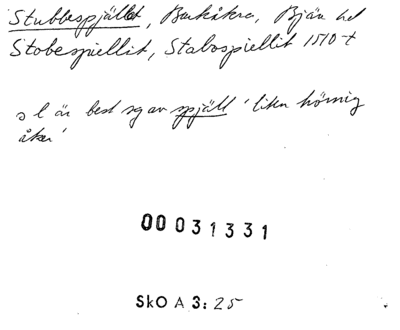 Stubbespjället, Barkåkra, Bjäre hd
Stobespiellit, Stabospiellit 1510-t
s l är best sg av spjäll 'liten hörnig
åker'
00031331
SkO A 3: 25